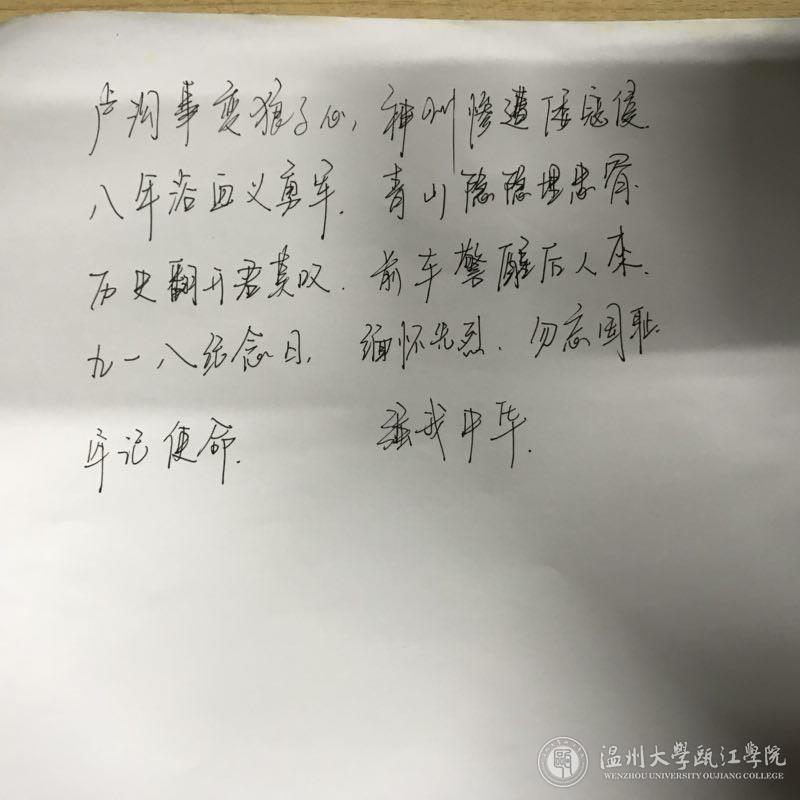 卢沟事变狼子心,神州惨遭倭寇侵.
八年浴血义勇军.青山隐隐埋忠骨.
历史翻开君莫叹.前车警醒后人来.
九一八纪念日,缅怀先烈.勿忘国耻.
牢记使命.强我中华.
温州大学瓯江学院
WENZHOU UNIVERSITY OUJIANG COLLEGE